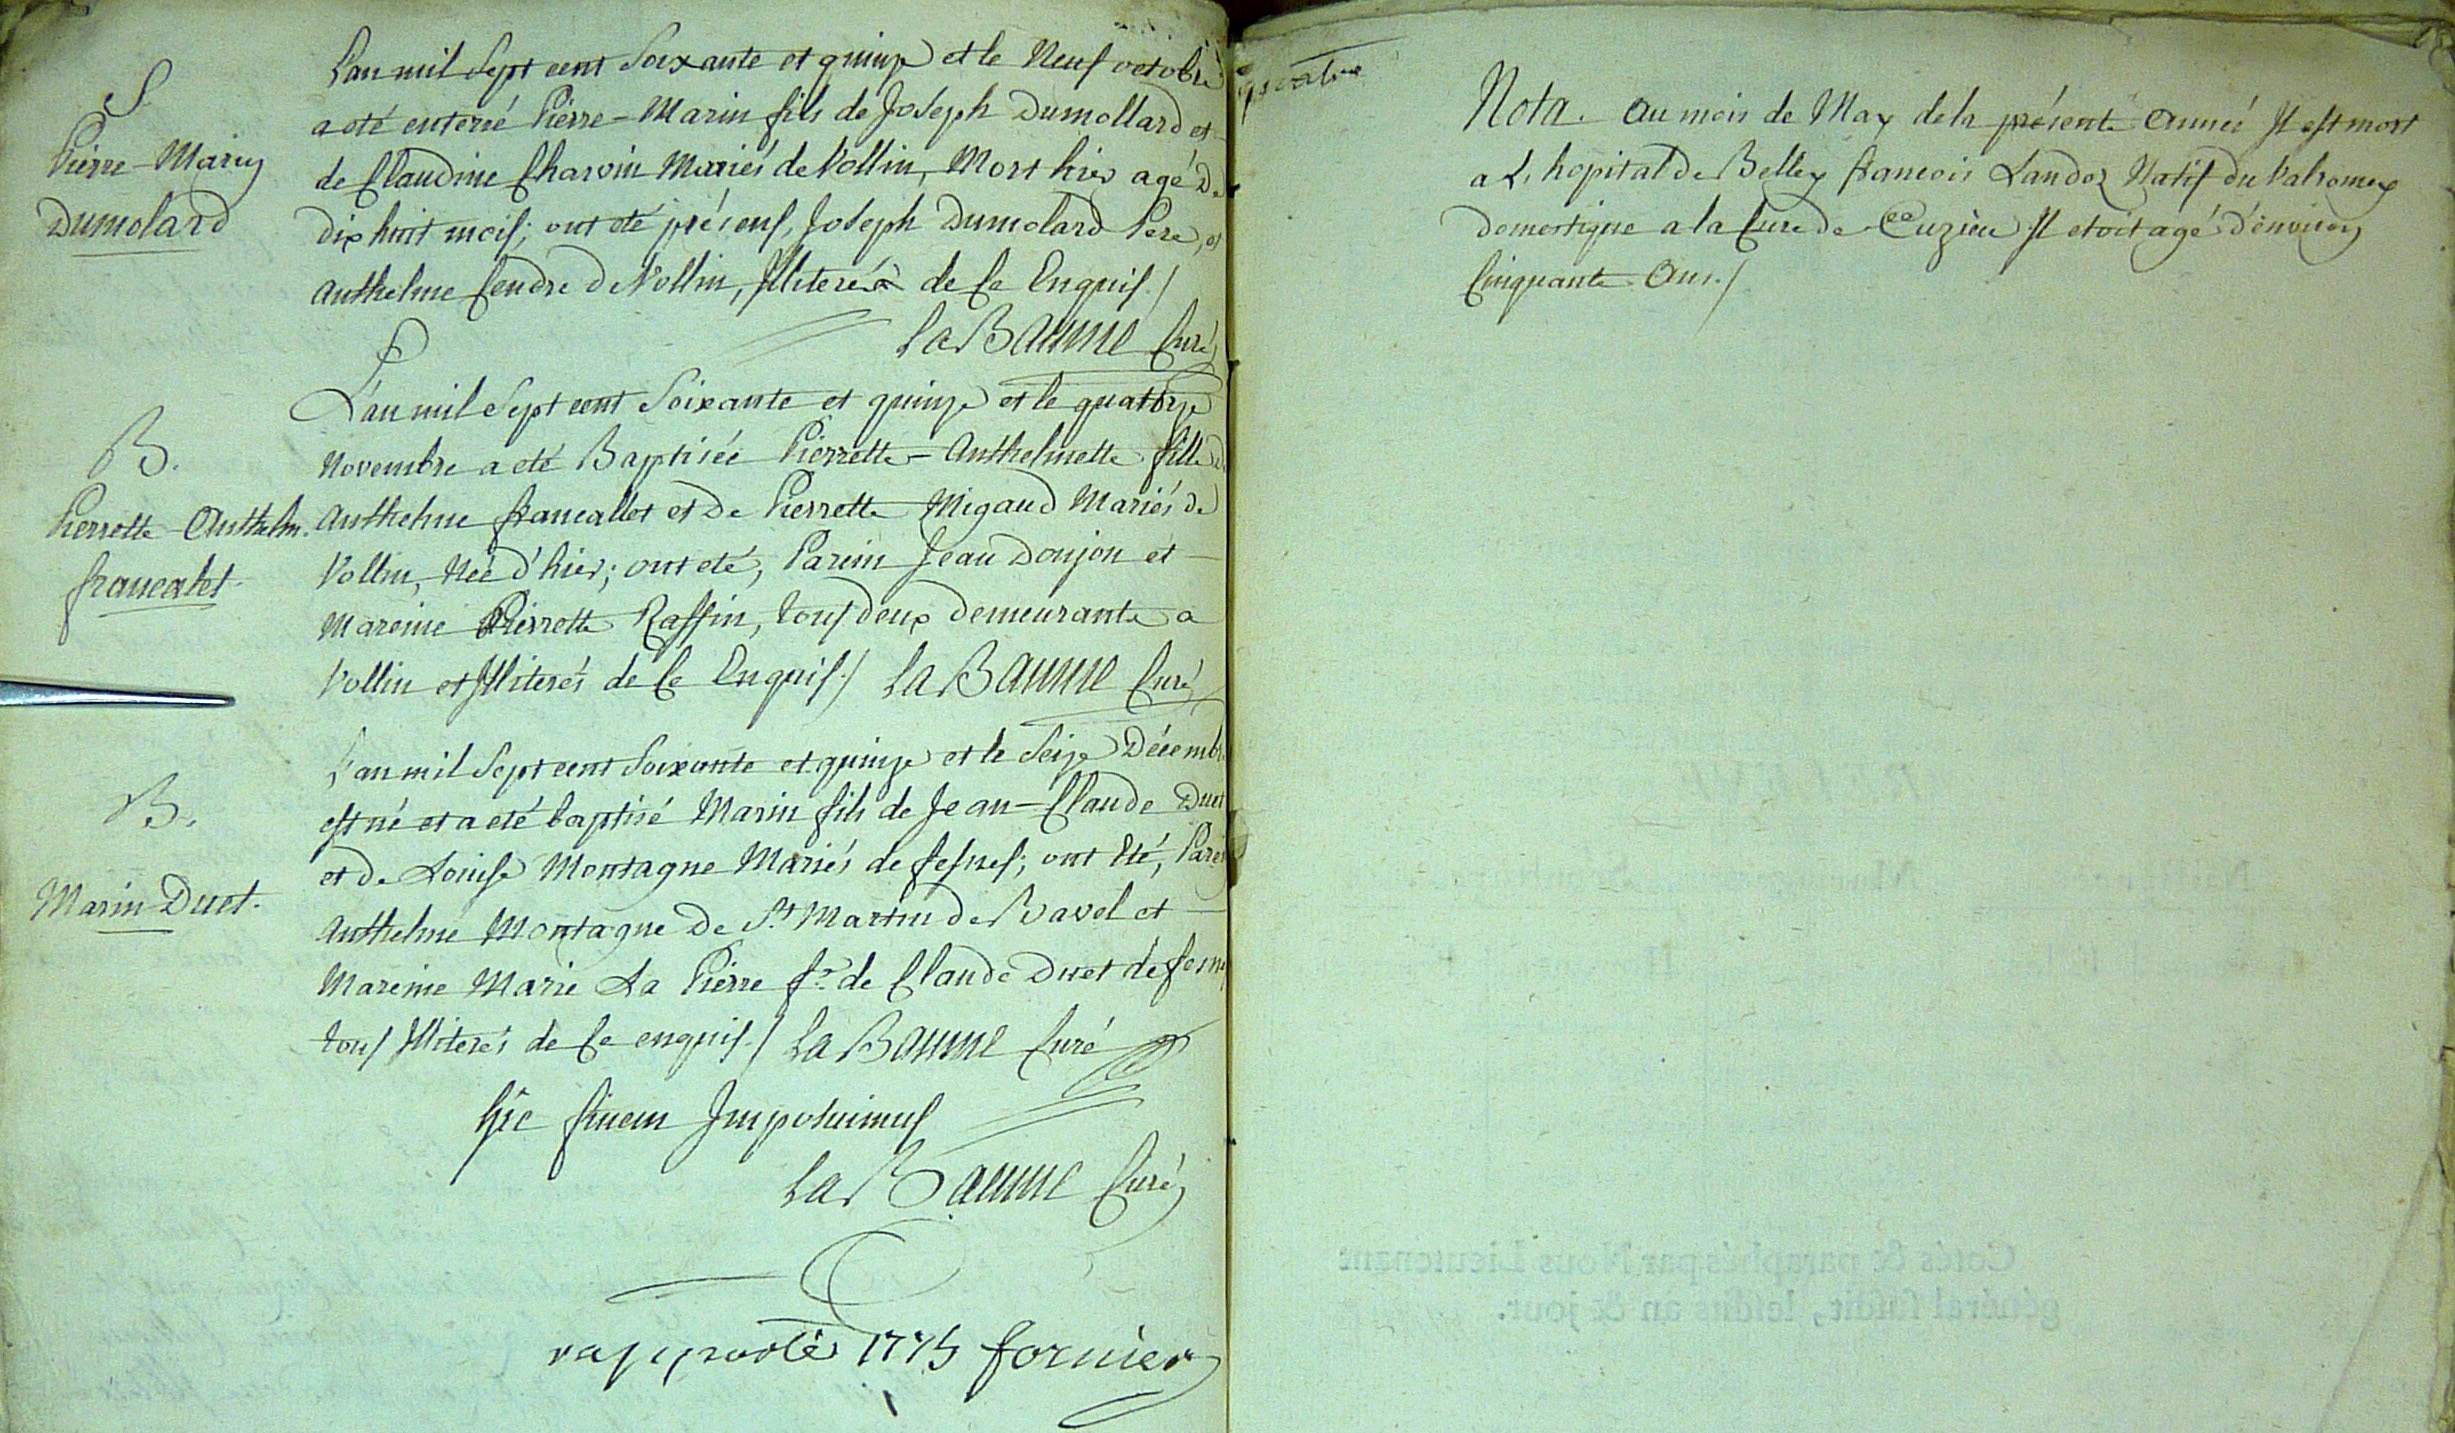 S
Pierre-Marin
Dumolard
L'an mil sept cent soixante et quinze et le neuf octobre
a eté enterré Pierre-Marin fils de Joseph Dumollard et
de Claudine Charvin mariés de Vollin, mort hier agé de
dix huit mois; ont eté présens, Joseph Dumolard Pere, et
Anthelme Cendre de Vollin, Illiterés de ce Enquis./
La Baume Curé
B.
Pierrette-Anthelm.
francalet
L'an mil sept cent soixante et quinze et le quatorze
Novembre a eté Baptisée Pierrette-Anthelmette fille de
Anthelme francallet et de Pierrette Migaud Mariés de
Vollin, Née d'hier; ont eté, Parein Jean Donjon et
Mareine Pierrette Raffin, tous deux demeurants a
Vollin et Illiterés de ce Enquis./ La Baume Curé
B.
Marin Duet.
L'an mil sept cent soixante et quinze et le seize Décembre
est né et a eté baptisé Marin fils de Jean-Claude Duet
et de Louise Montagne Mariés de fesnes; ont Eté, Parein
Anthelme Montagne De St. Martin de Bavel et
Mareine Marie La Pierre fe. de Claude Duet de fesnes
tous Illiterés de ce enquis./ La Baume Curé
hic finem Imposuimus
La Baume Curé
rapporté 1775 fornier
quatre
Nota. Au mois de May de la présente Année Il est mort
a L'hopital de Belley francois Landoz Natif du Valromey
domestique a la Cure de Ceuzieu Il etoit agé d'environ
Cinquante Ans./
Cotés & paraphés par Nous Lieutenant
général susdit, lesdits an & jour.